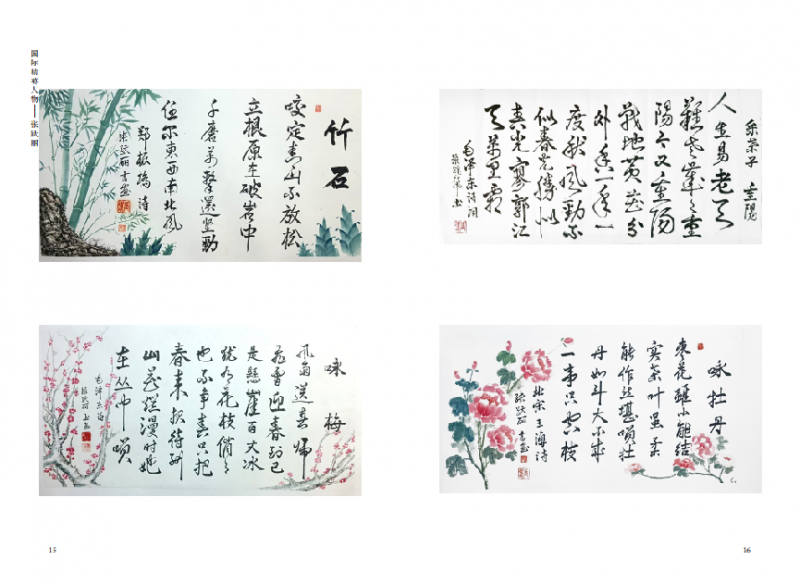 国际精英人物——张跃丽
竹石
咬定青山不放松
立根原在破岩中
千磨万击还坚劲
任尔东西南北风
郑板桥诗
张跃丽书画
采桑子 重阳
人生易老天
难老岁岁重
阳今又重阳
战地黄花分
外香一年一
度秋风劲不
似春光胜似
春光寥廓江
天万里霜
毛泽东诗词
张跃丽书
咏梅
风雨送春归
飞雪迎春到已
是悬崖百丈冰
犹有花枝俏俏
也不争春只把
春来报待到
山花烂漫时她
在丛中笑
毛泽东诗
张跃丽书画
咏牡丹
枣花虽小能结
实桑叶虽柔
能作丝堪嗟牡
丹如斗大不成
一事只空枝
北宋王海诗
张跃丽书画
15
16